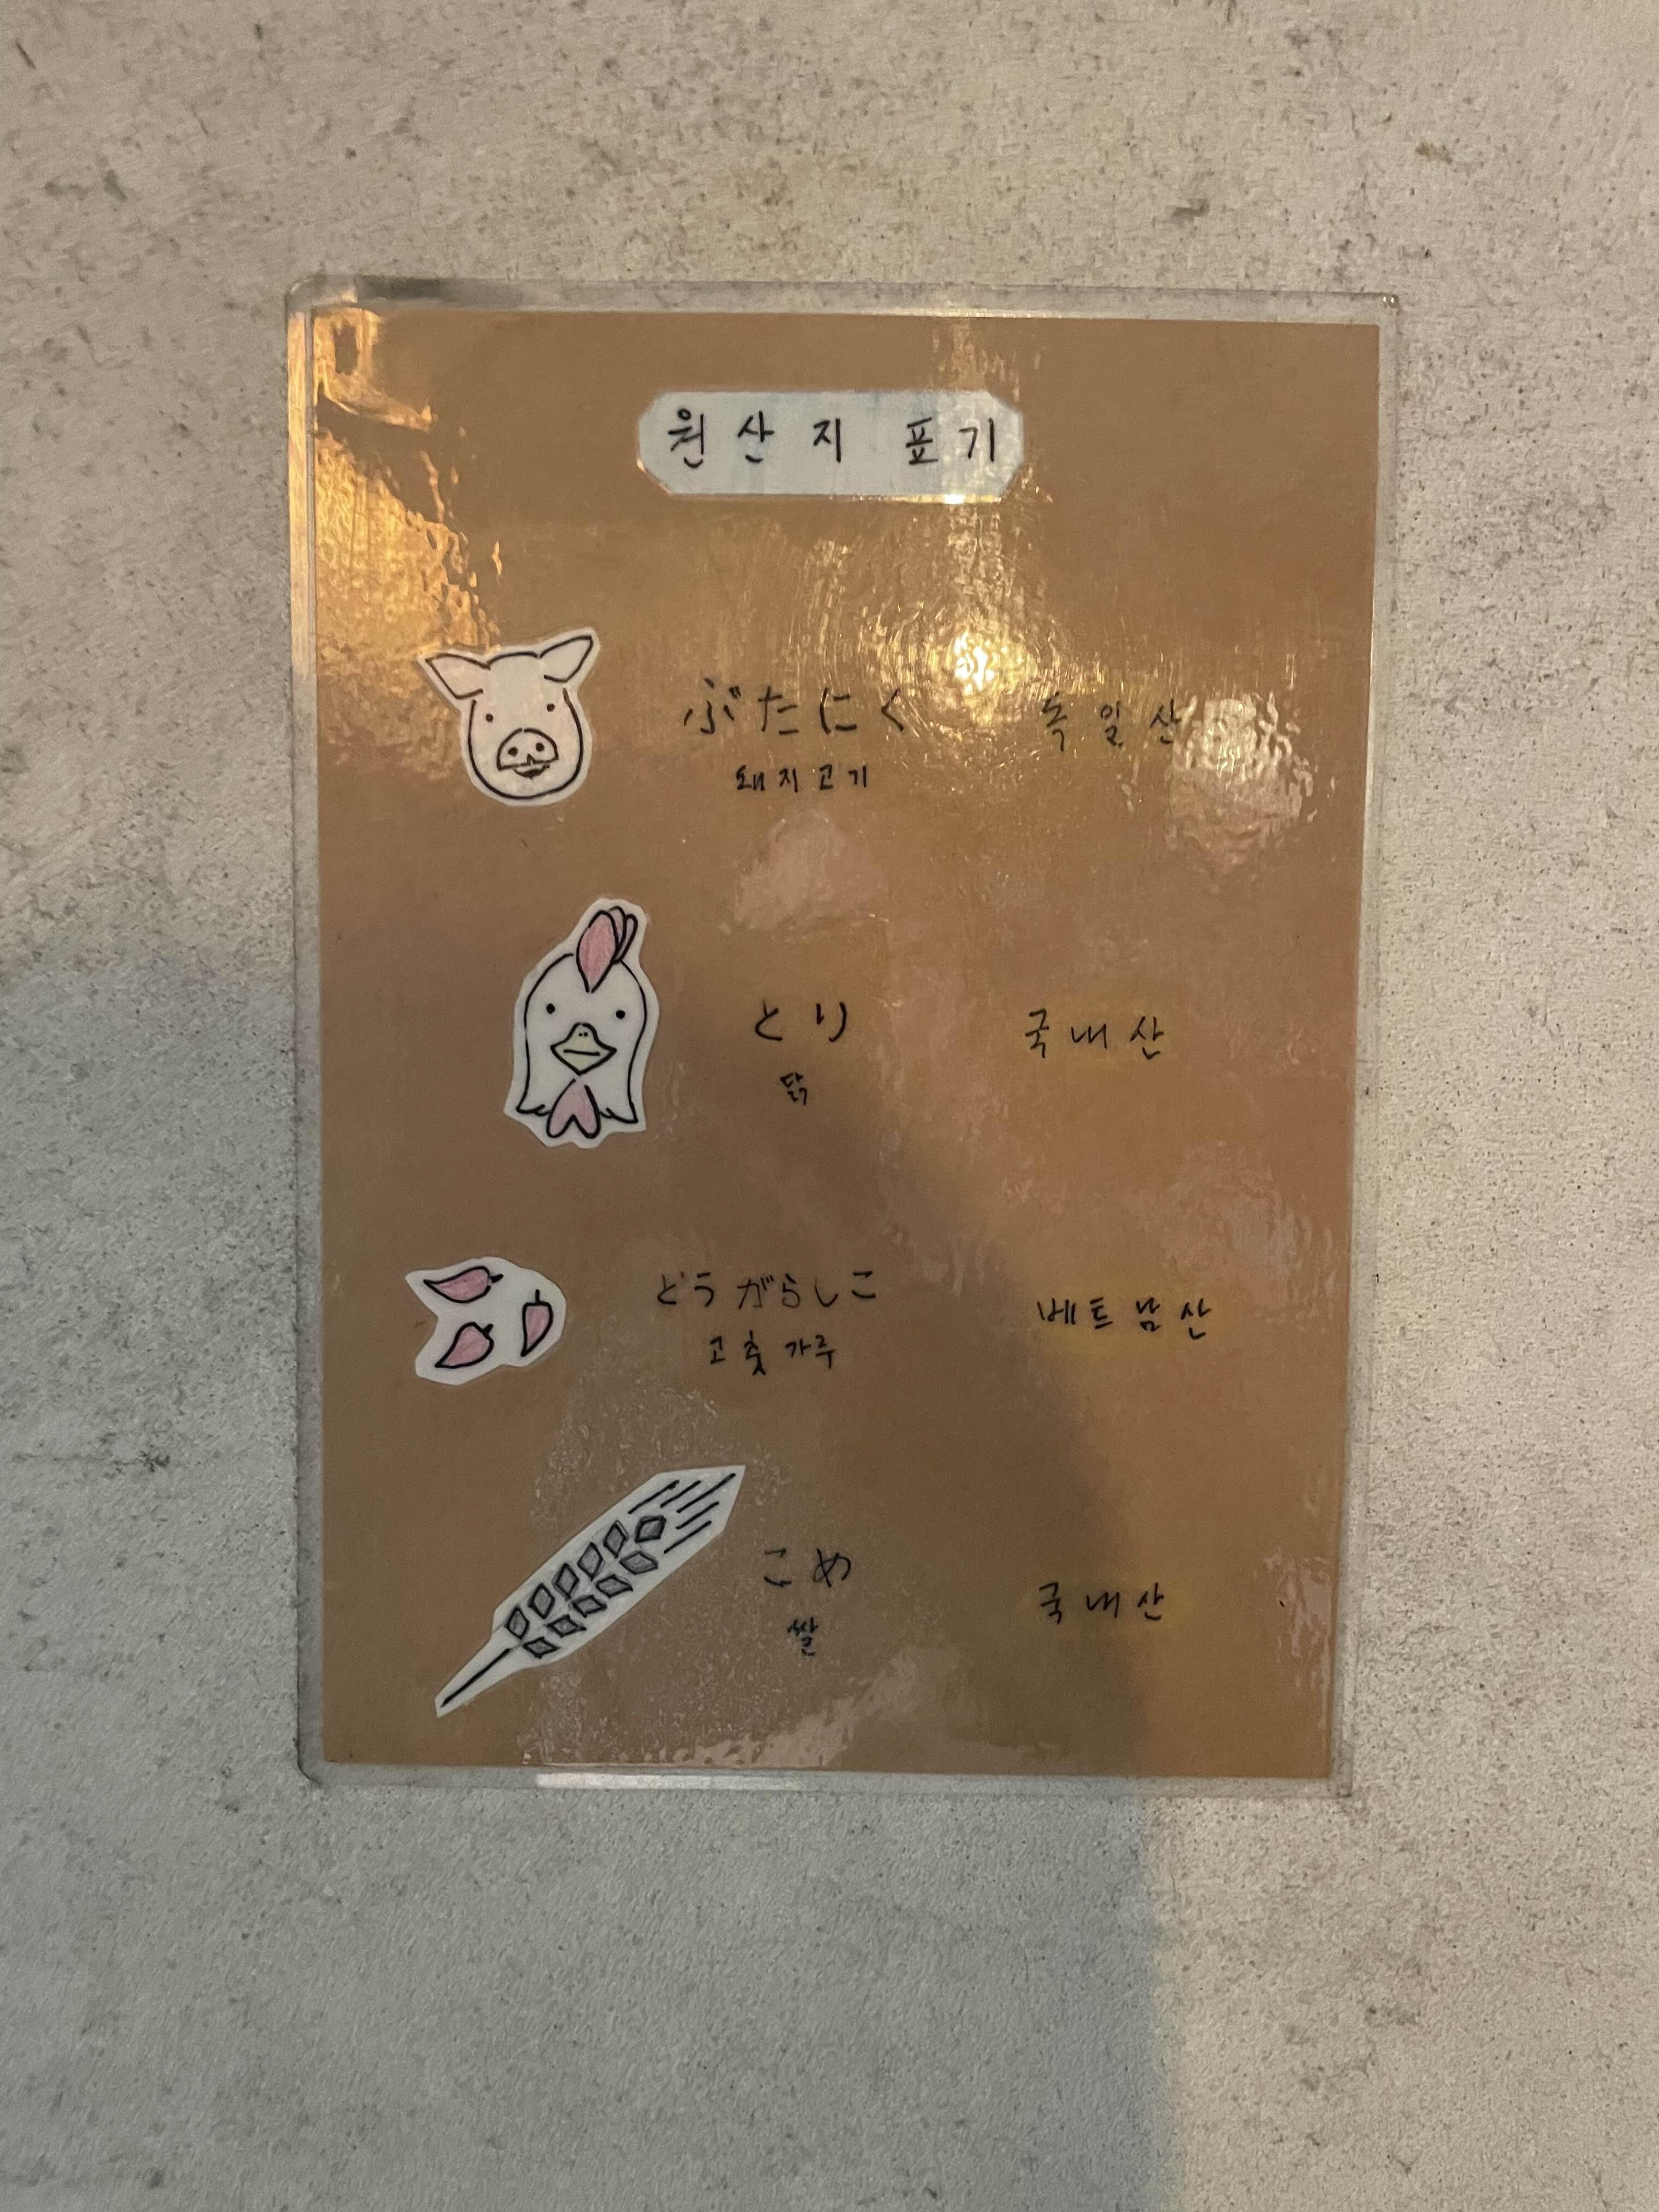 원산지 표기
ぶたにく 독일산
돼지고기
とり 국내산
닭
どうがらしこ 베트남산
고춧가루
こめ 국내산
쌀